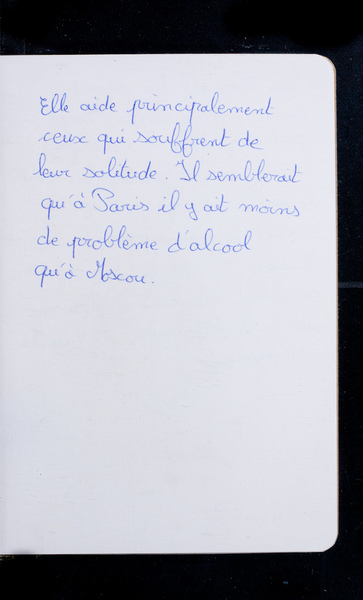 Elle aide principalement
ceux qui souffrent de
leur solitude. Il semblerait
qu'à Paris il y ait moins
de problème d'alcool
qu'à Moscou.